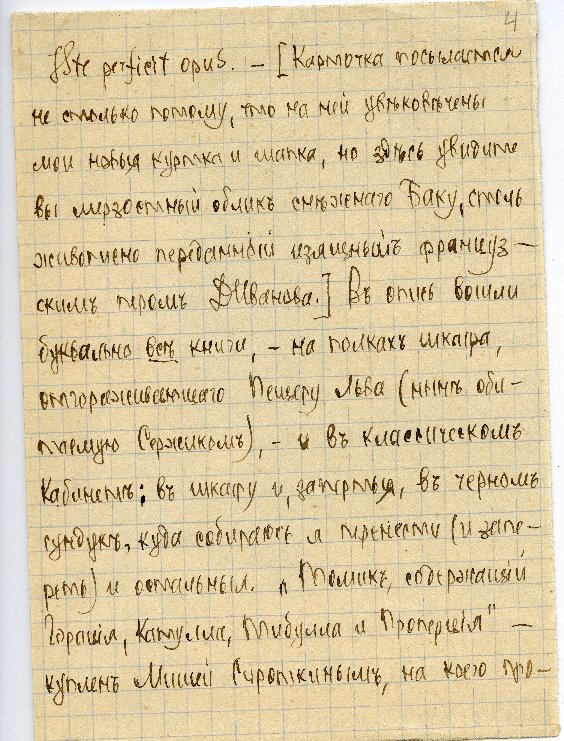 4
Iste perficit opus. — [Карточка посылается
не столько потому, что на ней увѣковѣчены
мои новыя куртка и шапка, но здѣсь увидите
вы мерзостный обликъ снѣжнаго Баку, столь
живописно переданный изящнымъ француз-
скимъ перомъ ДИванова.] Въ опись вошли
буквально всѣ книги, – на полкахъ шкафа,
отгораживающаго Пещеру Льва (нынѣ оби-
таемую Сержикомъ), – и въ классическомъ
Кабинетѣ; въ шкафу и, запертыя, въ черномъ
сундукѣ, куда собираюсь я перенести (и запе-
реть) и остальныя. „Томикъ, содержащій
Горація, Катулла, Тибулла и Проперція" —
купленъ Мишей Сироткинымъ, на коего про-